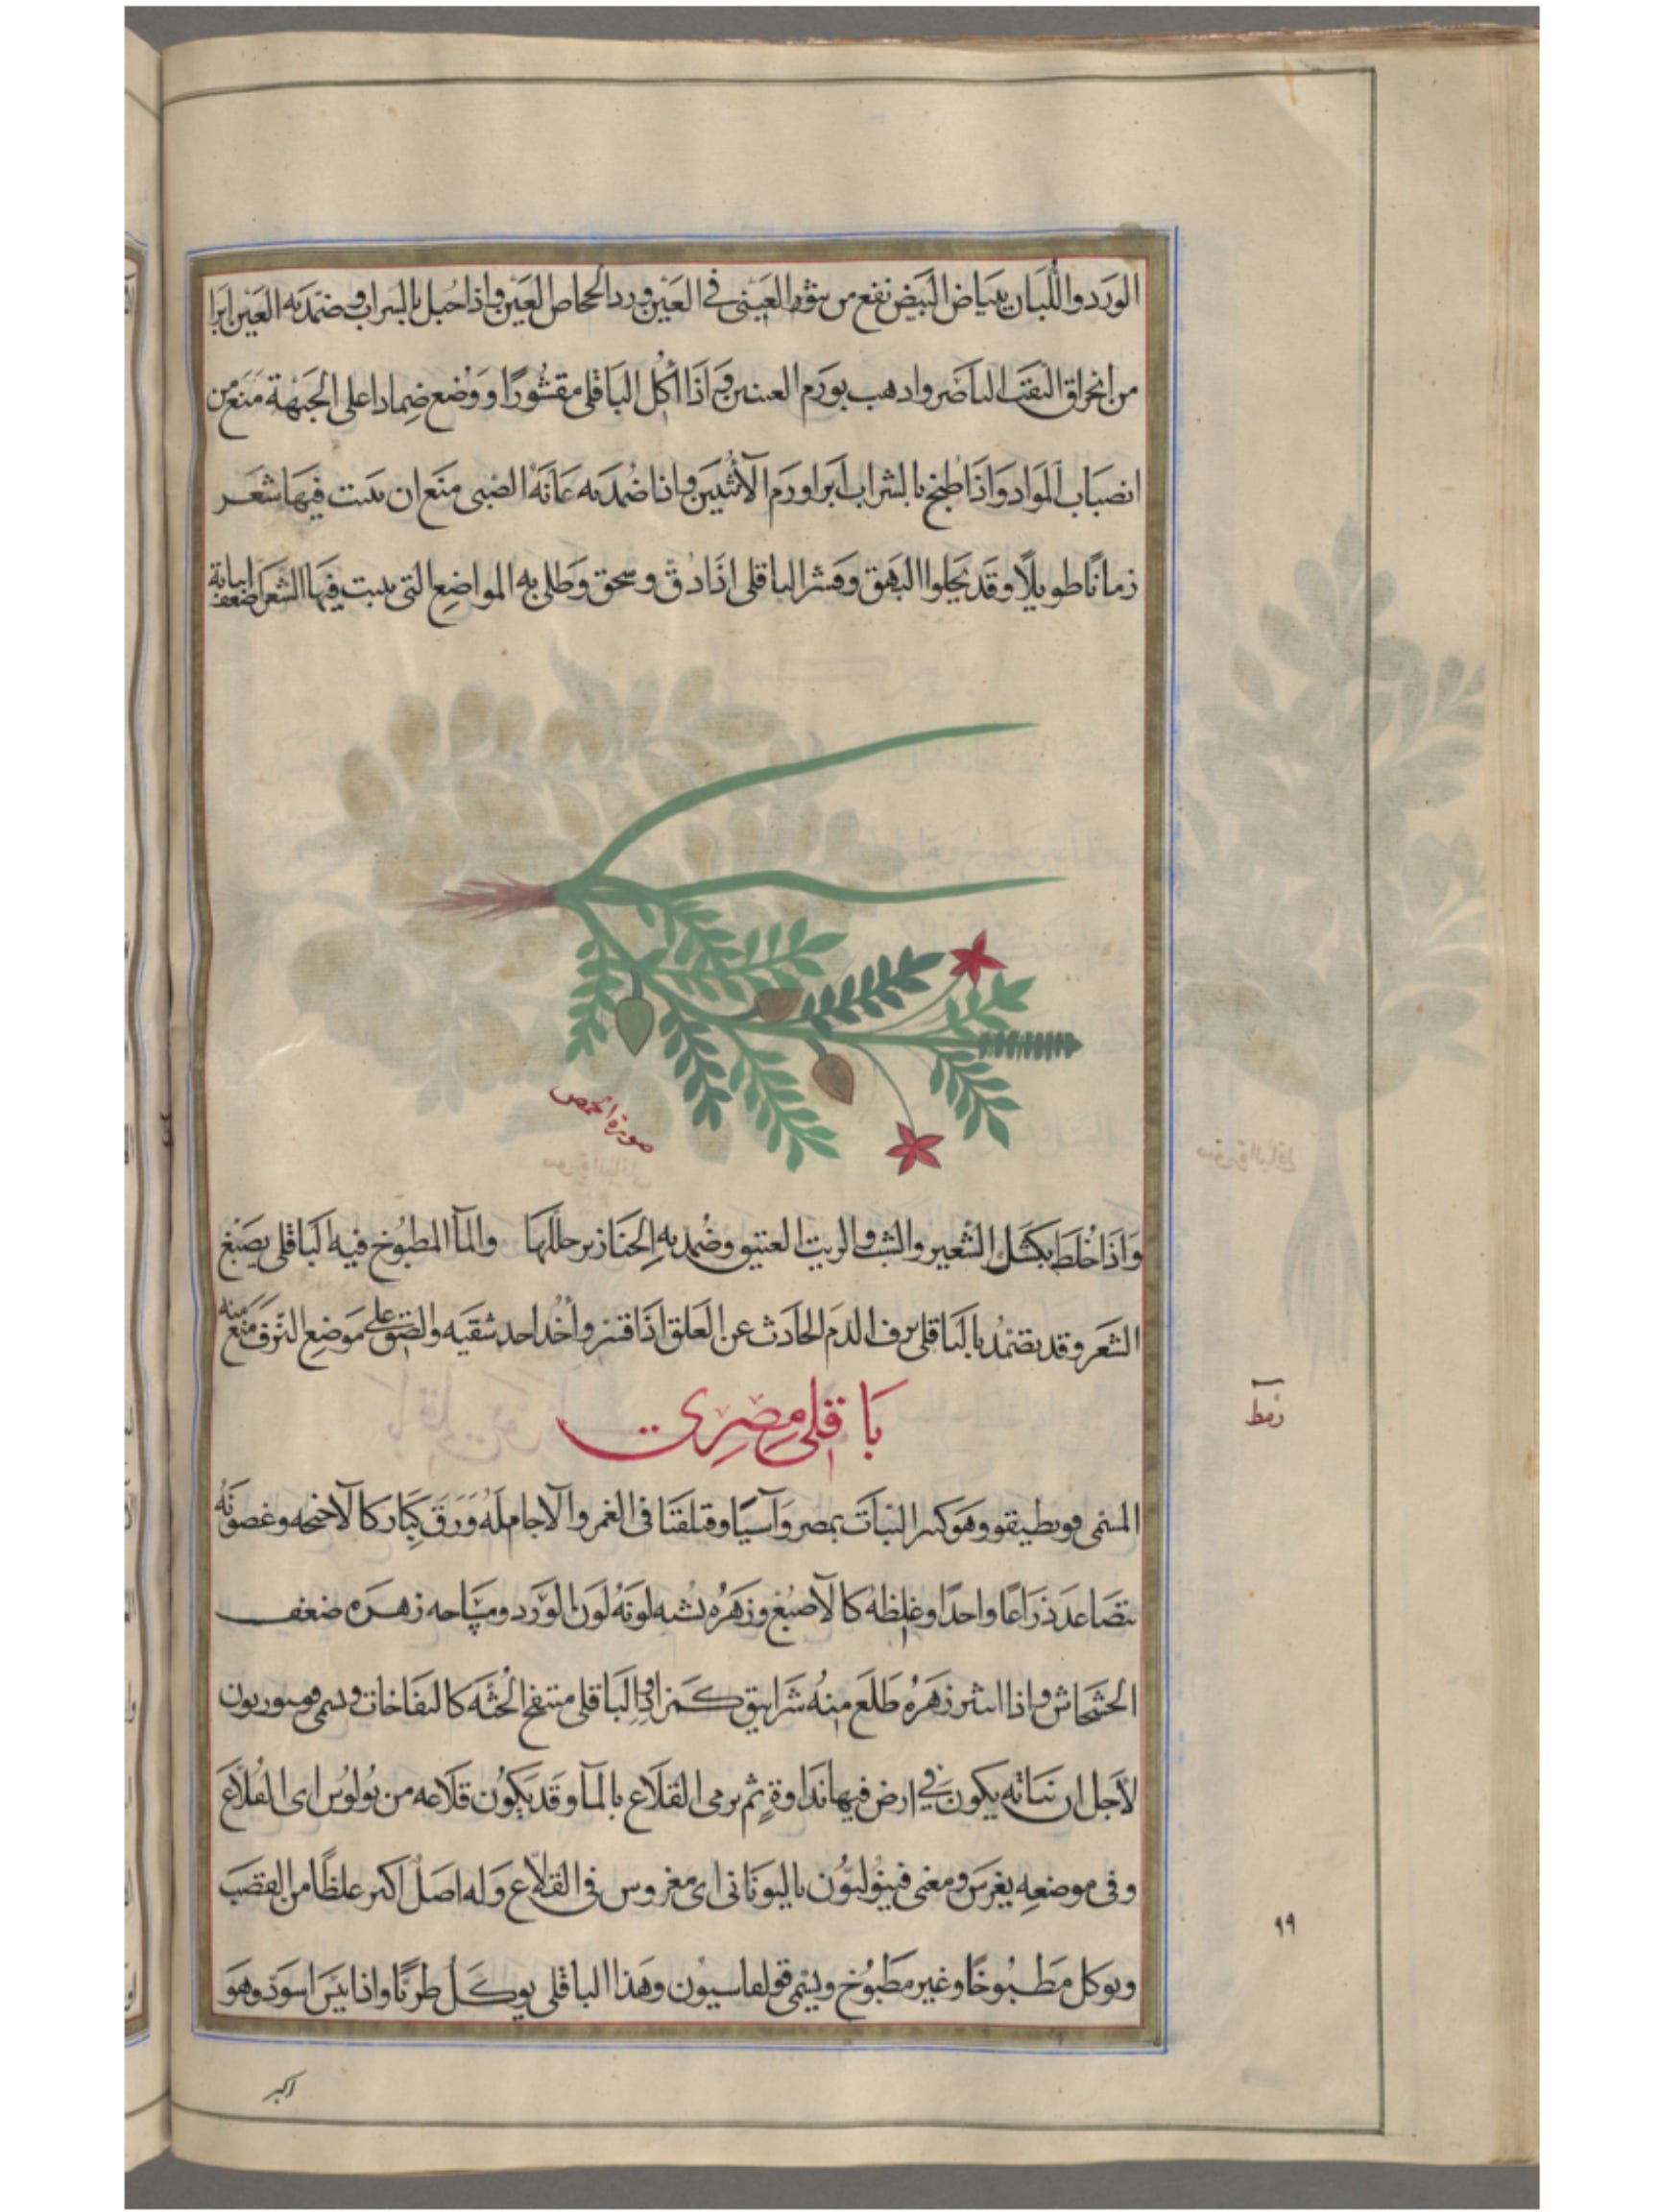 الورد واللبان ببياض البيض نفع من نتوء العينى فى العين ورد الجحاظ العين واذا حبل بالشراب وضمد به العين ابرا
من انخراق الباصر واذهب بورم العينين واذا اكل الباقلى مقشورا ووضع ضمادا على الجبهة منع من
انصباب المواد واذا طبخ بالشراب ابرا ورم الأنثيين واذا ضمد به عانة الصبى منع ان ينبت فيها شعر
زمانا طويلا وقد يجلوا البهق وقشر الباقلى اذا دق وسحق وطلى به المواضع التى ينبت فيها الشعر اضعف انباته
صورة الحمص
واذا خلط بكشك الشعير والشب والزيت العتيق وضمد به الخنازير حللها والمآ المطبوخ فيه الباقلى يصبغ
الشعر وقد يضمد بالباقلى نزف الدم الحادث عن العلق اذا قشر وأخذ احد شقيه والصق على موضع النزف منع منه
باقلى مصرى
المسمى وهو كثير النبات بمصر وآسيا وقيلقيا فى الغمر والآجام له ورق كبار كالاجنحه وغصونه
يتصاعد ذراعا واحدا وغلظه كالأصبع وزهره يشبه لونه لون الورد ومساحه زهره ضعف
الخشخاش واذا انتثر زهره طلع منه الباقلى منتفخ الجثه كالنفاخات ويسمى
لأجل ان نباته يكون فى ارض فيها نداوة ثم يرمى القلاع بالمآ وقد يكون قلاعه من اى القلاع
وفى موضعه يغرس ومعنى باليونانى اى مغروس فى القلاع وله اصل اكبر غلظا من القصب
ويوكل مطبوخا وغير مطبوخ ويسمى قولقاسيون وهذا الباقلى يوكل طريا واذا يبس اسود وهو
٩٩
اكبر